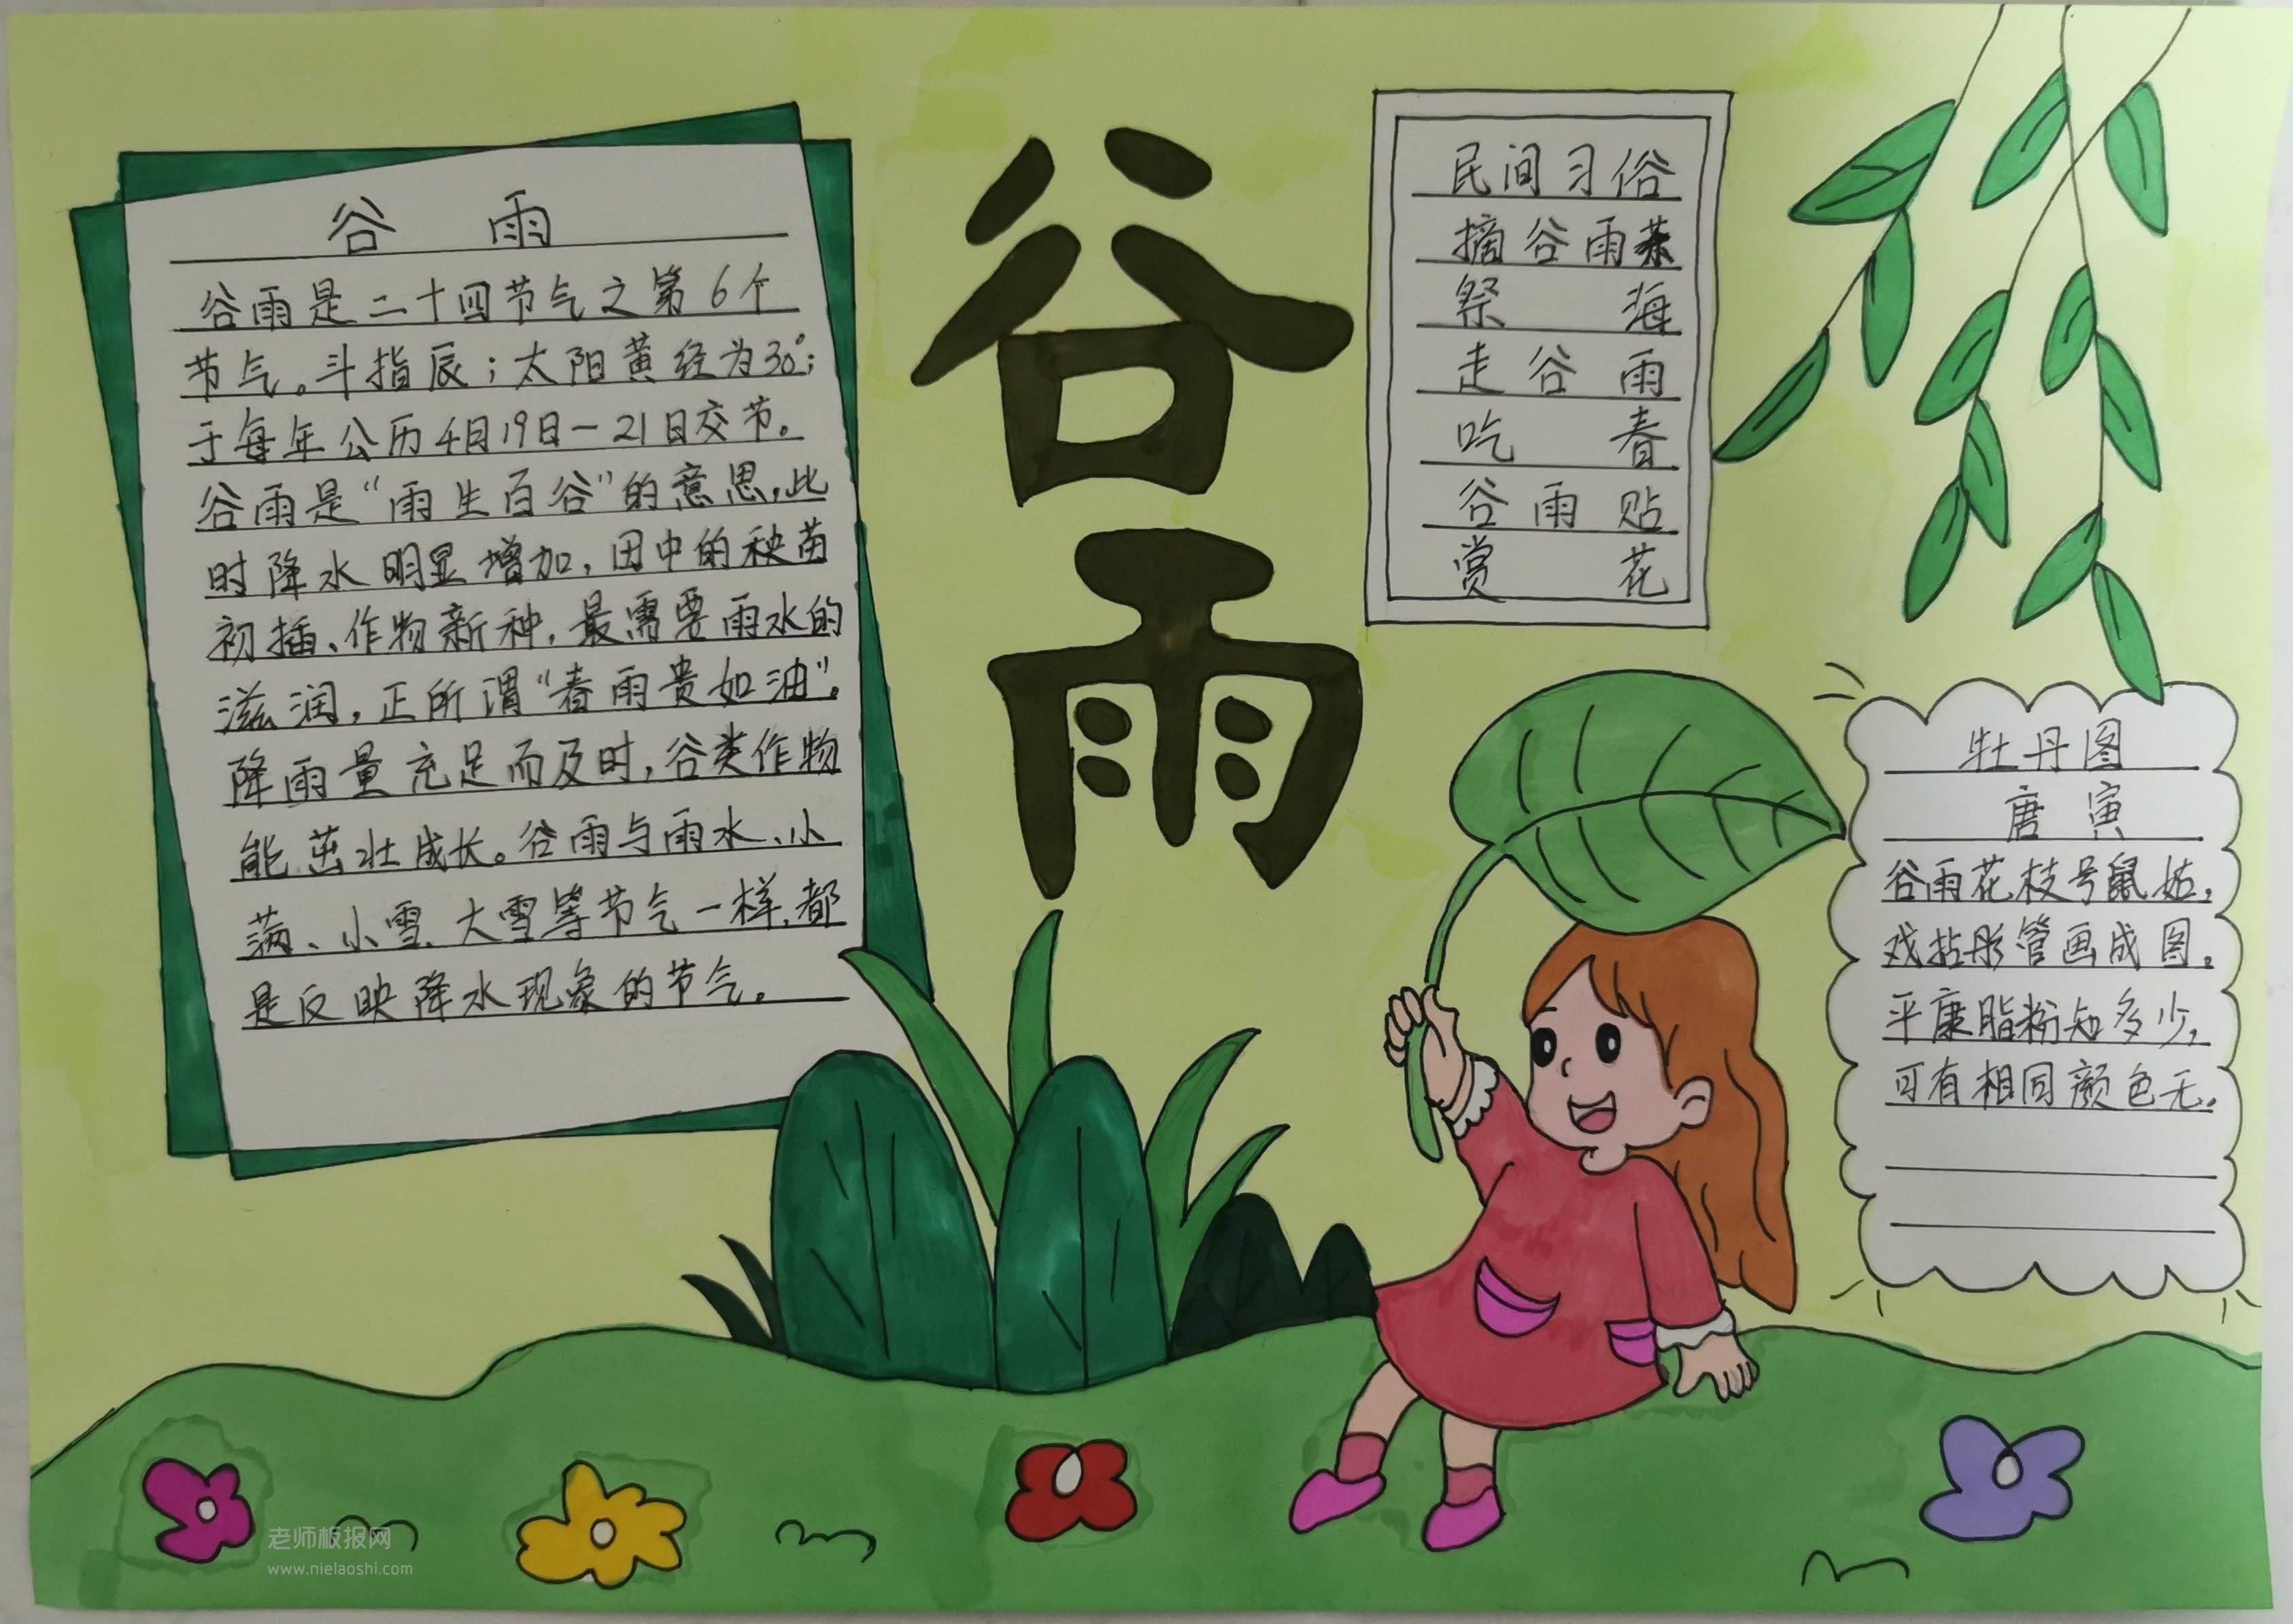 谷 雨
谷雨是二十四节气之第6个
节气。斗指辰；太阳黄经为30°；
于每年公历4月19日—21日交节。
谷雨是“雨生百谷”的意思，此
时降水明显增加，田中的秧苗
初插、作物新种，最需要雨水的
滋润，正所谓“春雨贵如油”。
降雨量充足而及时，谷类作物
能茁壮成长。谷雨与雨水、小
满、小雪、大雪等节气一样，都
是反映降水现象的节气。
谷
雨
民间习俗
摘谷雨茶
祭 海
走谷雨
吃 春
谷雨贴
赏 花
牡丹图
唐 寅
谷雨花枝号鼠姑，
戏拈彤管画成图。
平康脂粉知多少，
可有相同颜色无。
老师板报网
www.nielaoshi.com